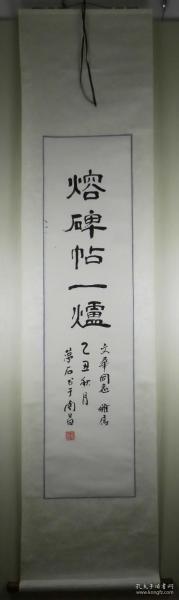 熔碑帖一爐
文華同志 雅屬
乙丑秋月
夢石书于南昌
孔夫子旧书网